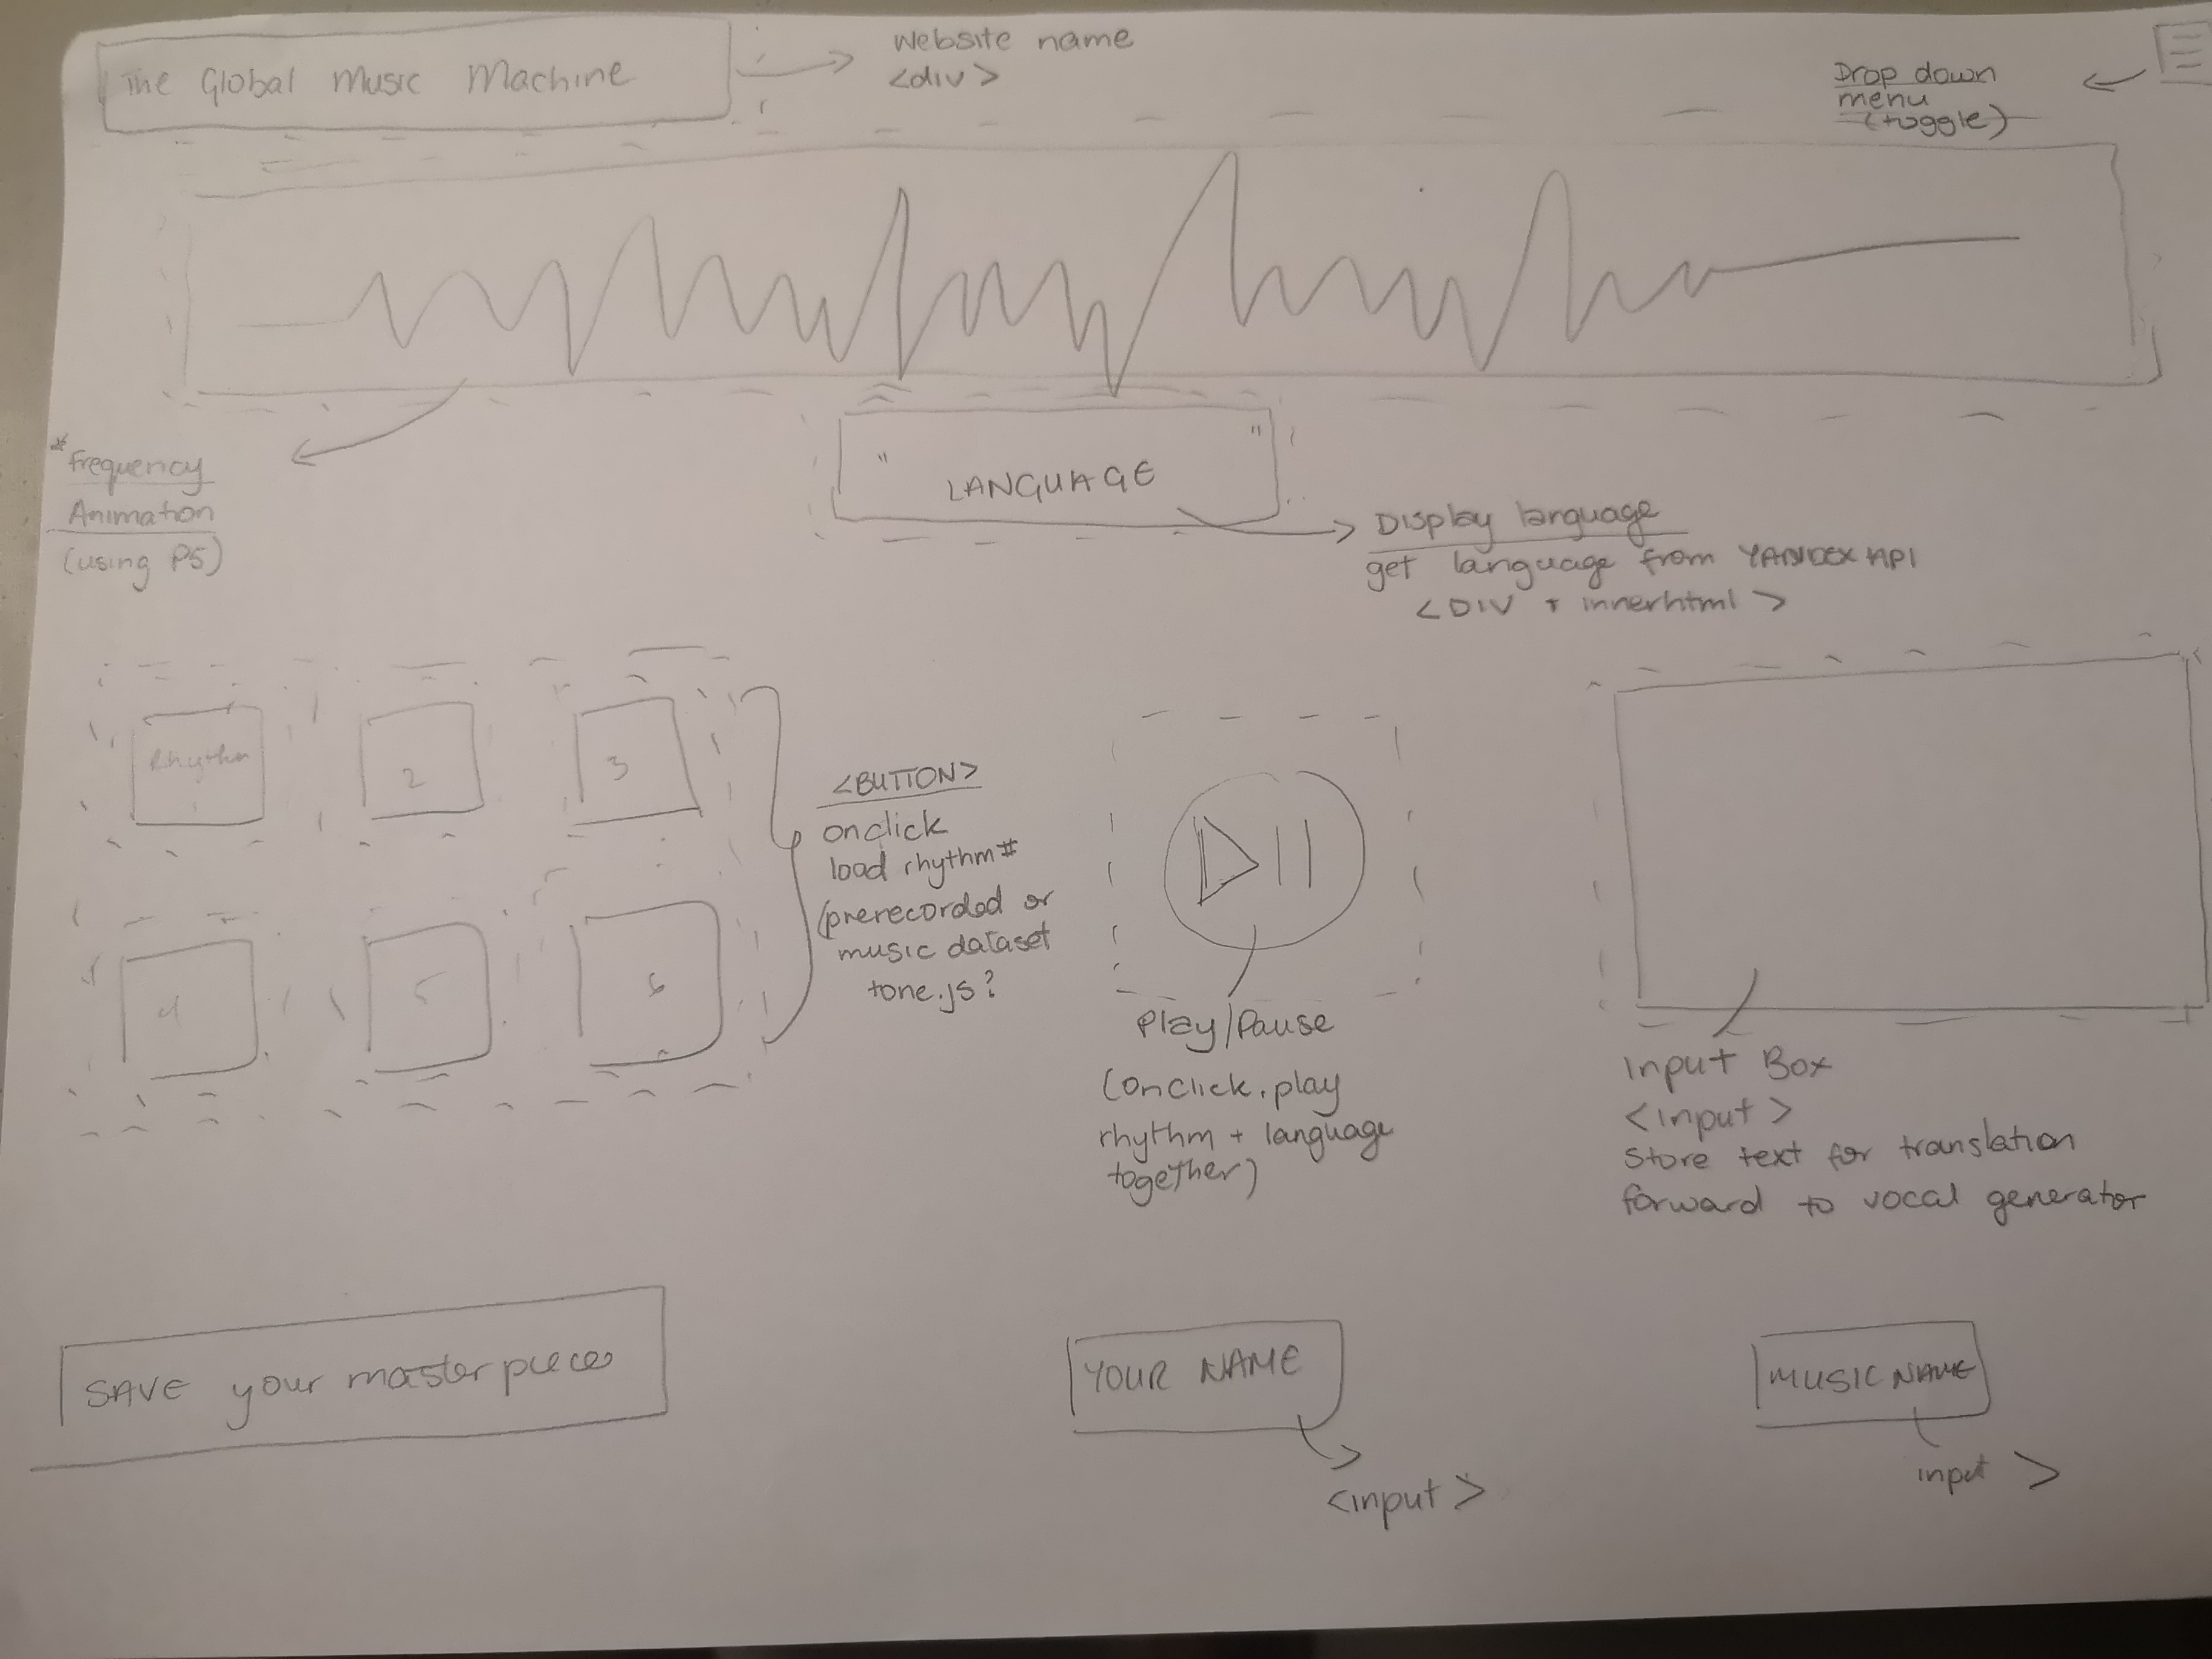 The Global Music Machine
Website name
<div>
Drop down
menu
(toggle)
*Frequency
Animation
(using P5)
" LANGUAGE "
Display language
get language from YANDEX API
<DIV + innerhtml>
Rhythm
1
2
3
4
5
6
<BUTTON>
onclick
load rhythm#
(prerecorded or
music dataset
tone.js?
Play/Pause
(onclick.play
rhythm + language
together)
Input Box
<input>
Store text for translation
forward to vocal generator
SAVE your masterpiece
YOUR NAME
<input>
MUSIC NAME
input >